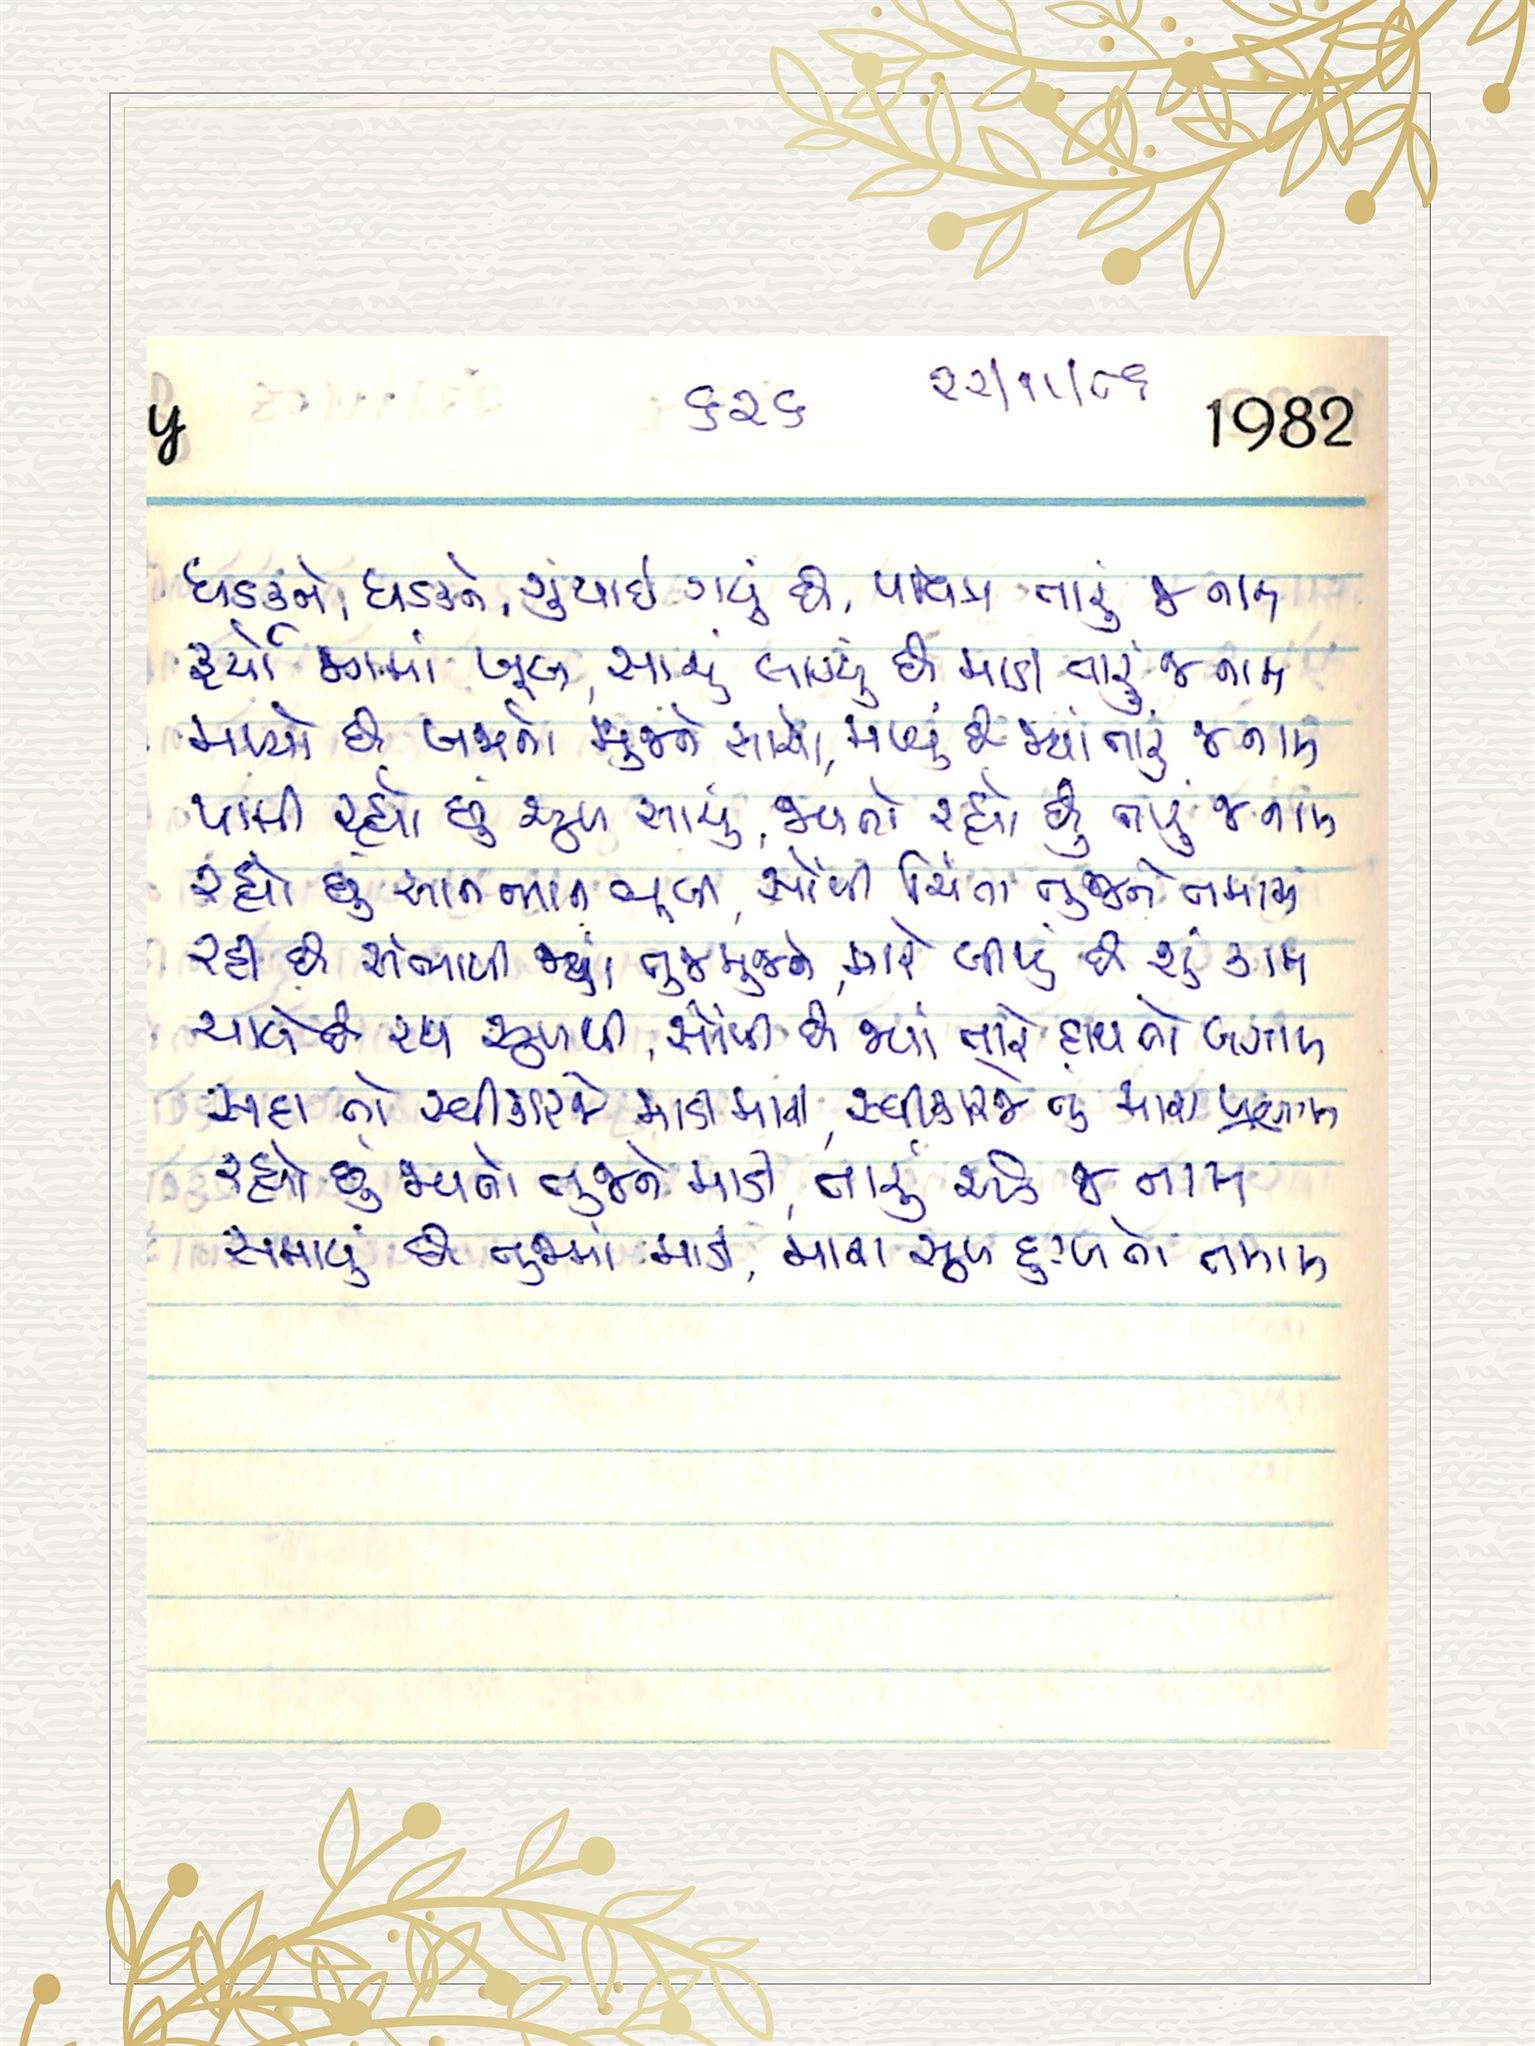 y ૬૨૬ ૨૨/૧૧/૮૬ 1982
ધડકને, ધડકને, ગુંથાઇ ગયું છે, પવિત્ર તારું જ નામ
ફર્યો જગમાં ખૂબ, સાચું લાગ્યું છે માડી તારું જ નામ
મળ્યો છે જપનો મુજને સાથ, મળ્યું છે જ્યાં તારું જ નામ
પામી રહ્યો છું સુખ સાચું, જપતો રહ્યો છું તારું જ નામ
રહ્યો છું ભાન ભૂલી, સોંપી ચિંતા તુજને તમામ
રહી છે સંભાળી જ્યાં તુજ મુજને, મારે બીજું છે શું કામ
ચાલે છે રથ સુખથી, સોંપી છે જ્યાં તારે હાથ તો લગામ
સદા તો સ્વીકારજે માડી મારા, સ્વીકારજે તું મારા પ્રણામ
રહ્યો છું જપતો તુજને માડી, તારું એક જ નામ
સમાયું છે તુજમાં માડી, મારા સુખ દુઃખ તો તમામ